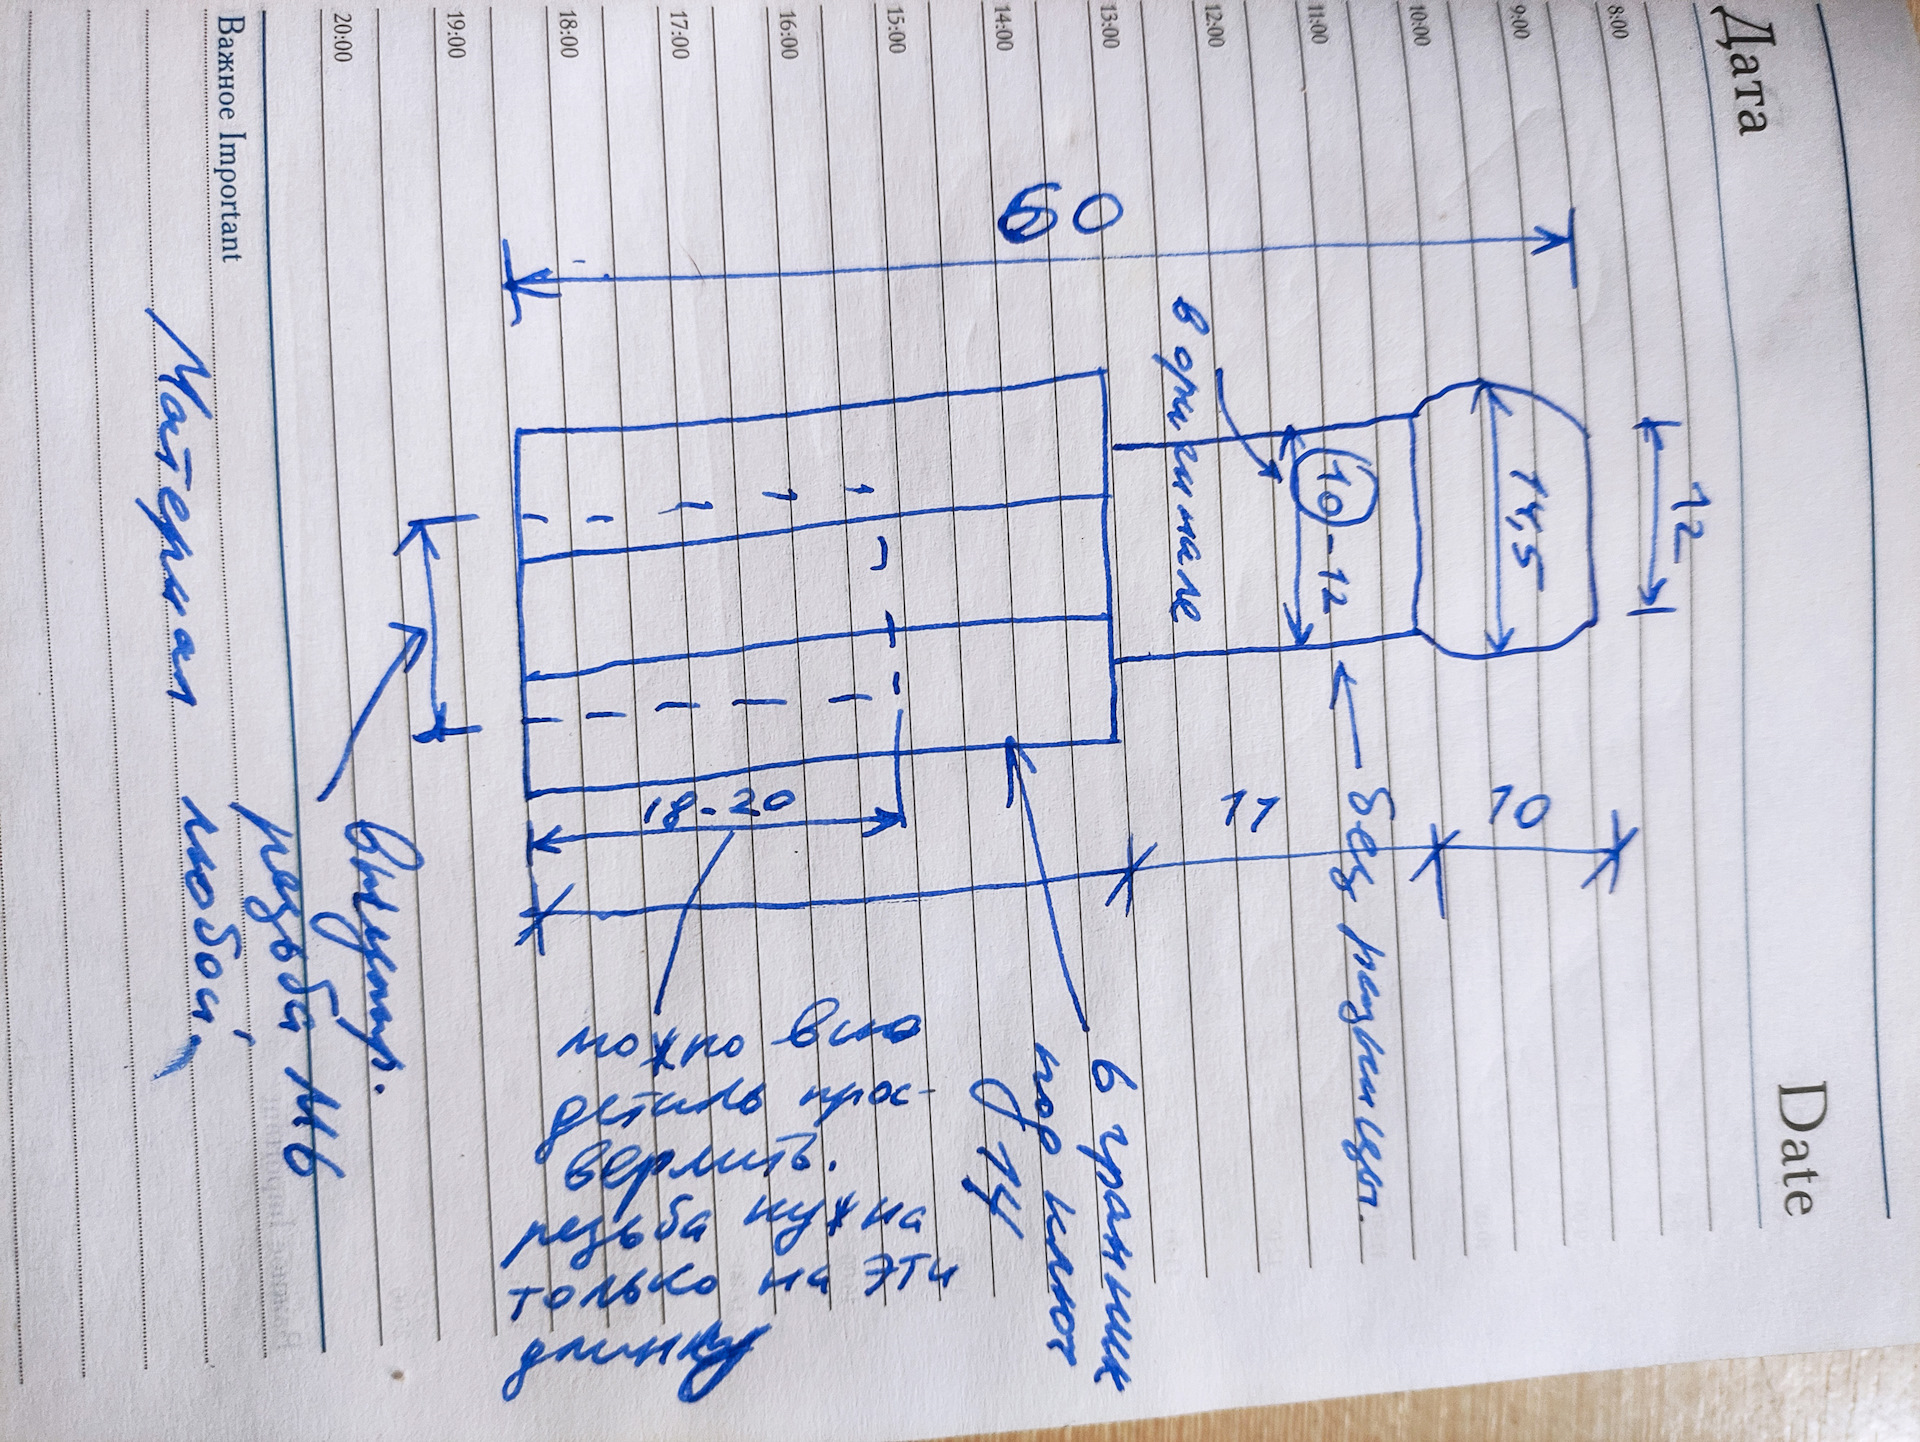 Дата
Date
8:00
9:00
10:00
11:00
12:00
13:00
14:00
15:00
16:00
17:00
18:00
19:00
20:00
Важное Important
12
14,5
10
10-12
← без разницы.
11
в оригинале
60
6 гранник
под ключ
14
18-20
можно всю
деталь прос-
верлить.
резьба нужна
только на эту
длинну
внутр.
резьба М6
Материал любой